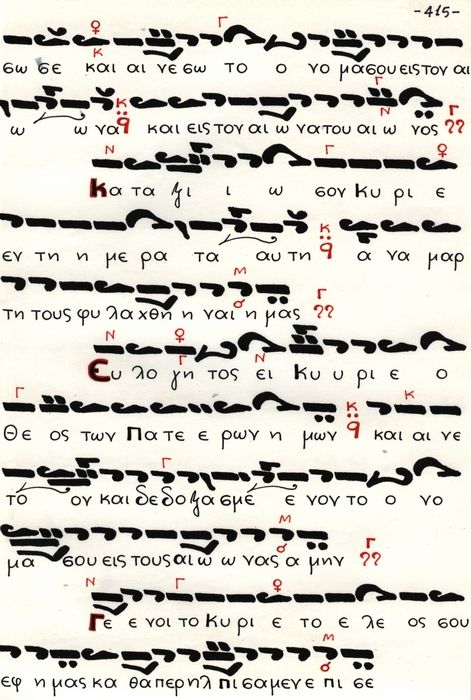 -415-
σω σε και αι νε σω το ο νο μα σου εις τον αι
ω ω να και εις τον αι ω να του αι ω νος
Κα τα ξι ι ω σον Κυ ρι ε
εν τη η με ρα τα αυ τη α να μαρ
τη τους φυ λα χθη η ναι η μας
Ευ λο γη τος ει Κυ υ ρι ε ο
Θε ος των Πα τε ε ρων η μων και αι νε
το ον και δε δο ξα σμε ε νον το ο νο
μα σου εις τους αι ω ω νας α μην
Γε ε νοι το Κυ ρι ε το ε λε ος σου
εφ η μας κα θα περ ηλ πι σα μεν ε πι σε